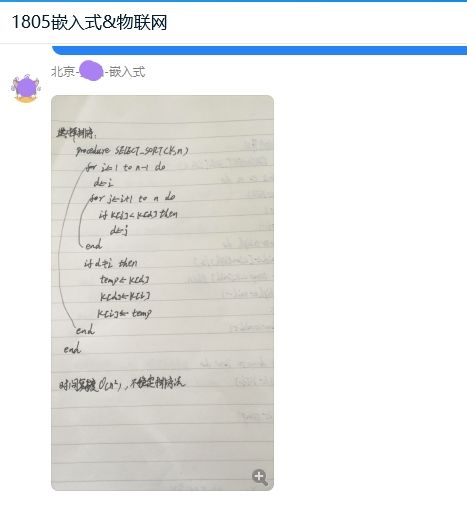 1805嵌入式&物联网
北京-
-嵌入式
选择排序:
procedure SELECT_SORT(K,n)
for i=1 to n-1 do
d←i
for j←i+1 to n do
if K[j]<K[d] then
d←j
end
if d≠i then
temp←K[d]
K[d]←K[i]
K[i]← temp
end
end
时间复杂度O(n²),不稳定排序法